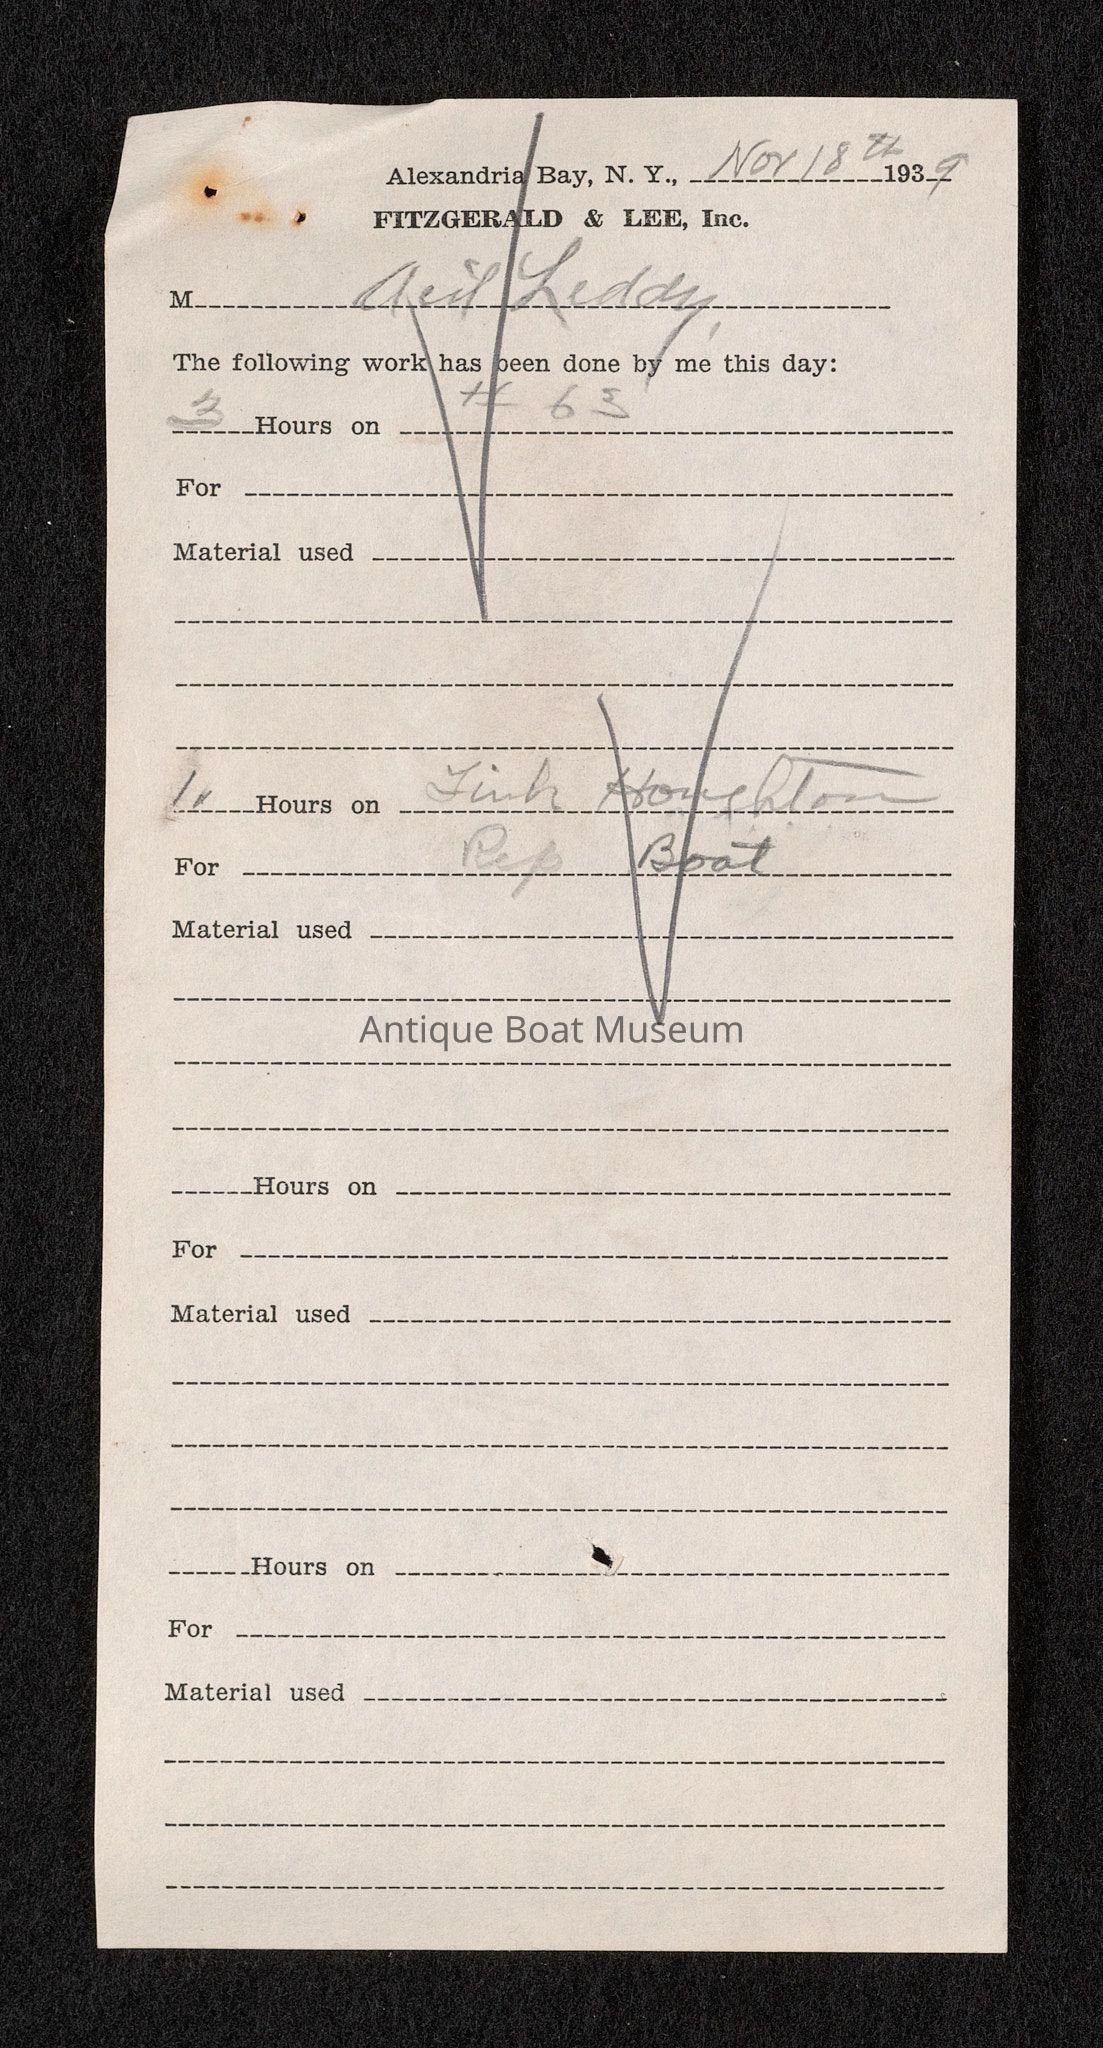 Alexandria Bay, N. Y., Nov 18th 1939
FITZGERALD & LEE, Inc.
M Leddy,
The following work has been done by me this day:
3 Hours on # 63
For
Material used
1 Hours on Houghton
For Rep Boat
Material used
Antique Boat Museum
Hours on
For
Material used
Hours on
For
Material used